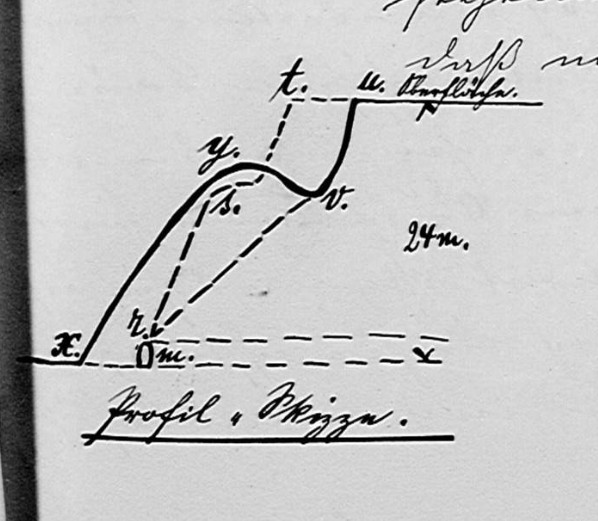 daß
t. u. Oberfläche.
y.
s. v.
24 m.
r.
x. m.
Profil-Skizze.